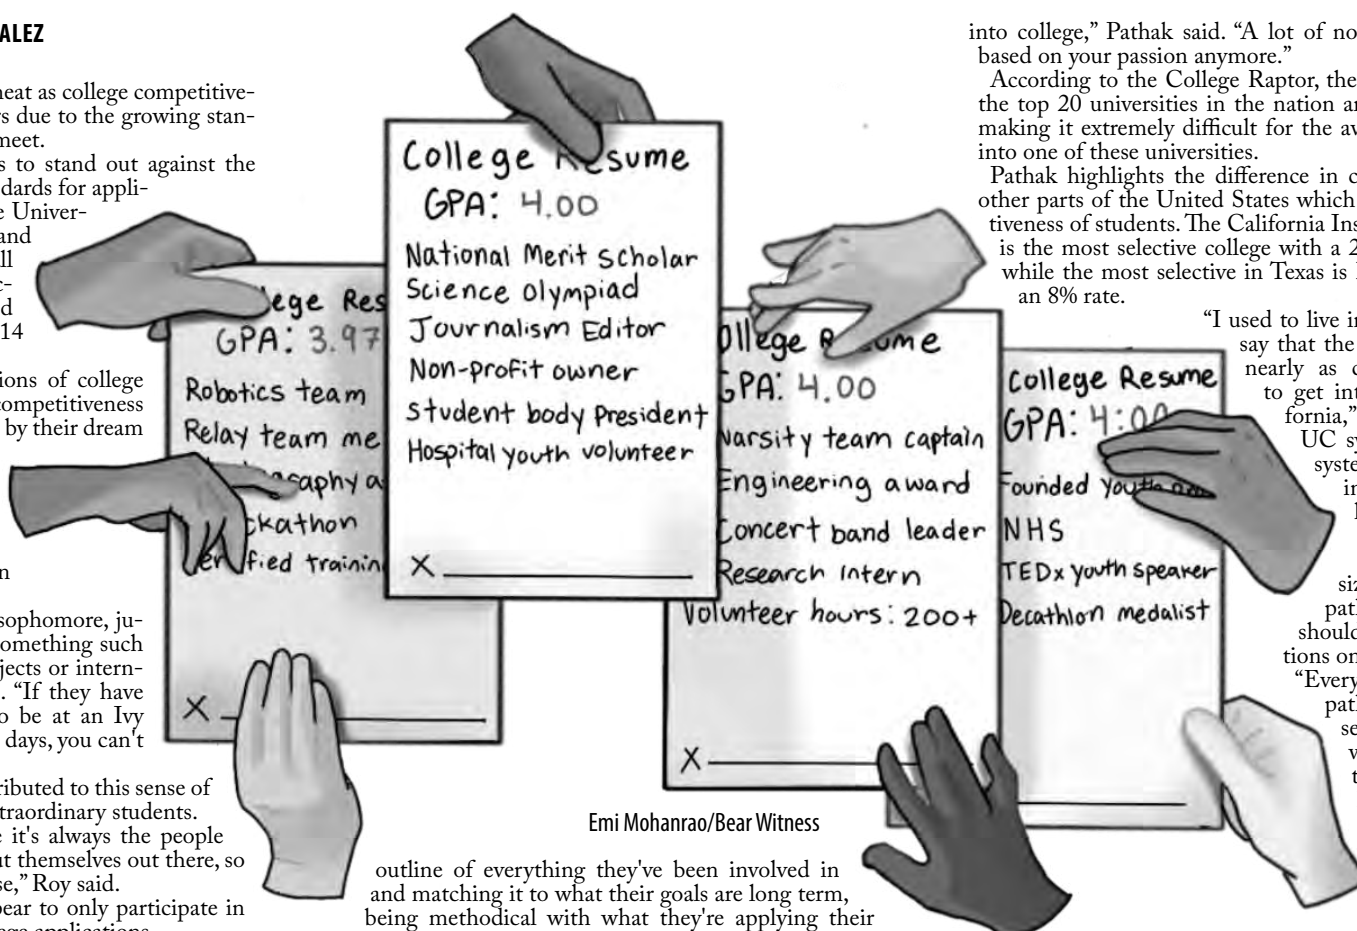 ALEZ
neat as college competitive-
rs due to the growing stan-
meet.
s to stand out against the
dards for appli-
e Univer-
and
ll
c-
d
14
ions of college
competitiveness
by their dream
n
sophomore, ju-
omething such
jects or intern-
. “If they have
o be at an Ivy
days, you can't
ributed to this sense of
traordinary students.
e it's always the people
ut themselves out there, so
se,” Roy said.
pear to only participate in
ege applications.
lege Res
GPA: 3.97
Robotics team
Relay team me
raphy a
ckathon
fied trainin
X
College Resume
GPA: 4.00
National Merit scholar
Science Olympiad
Journalism Editor
Non-profit owner
student body President
Hospital youth volunteer
X
ollege Resume
GPA: 4.00
Varsity team captain
Engineering award
Concert band leader
Research Intern
Volunteer hours: 200+
X
College Resume
GPA: 4:00
Founded Youth
NHS
TEDx youth speaker
Decathlon medalist
Emi Mohanrao/Bear Witness
outline of everything they've been involved in
and matching it to what their goals are long term,
being methodical with what they're applying their
into college,” Pathak said. “A lot of no
based on your passion anymore.”
According to the College Raptor, the
the top 20 universities in the nation ar
making it extremely difficult for the av
into one of these universities.
Pathak highlights the difference in c
other parts of the United States which
tiveness of students. The California Ins
is the most selective college with a 2
while the most selective in Texas is
an 8% rate.
“I used to live in
say that the
nearly as d
to get int
fornia,”
UC sy
syste
in
siz
path
should
tions on
“Every
path
se
v
t